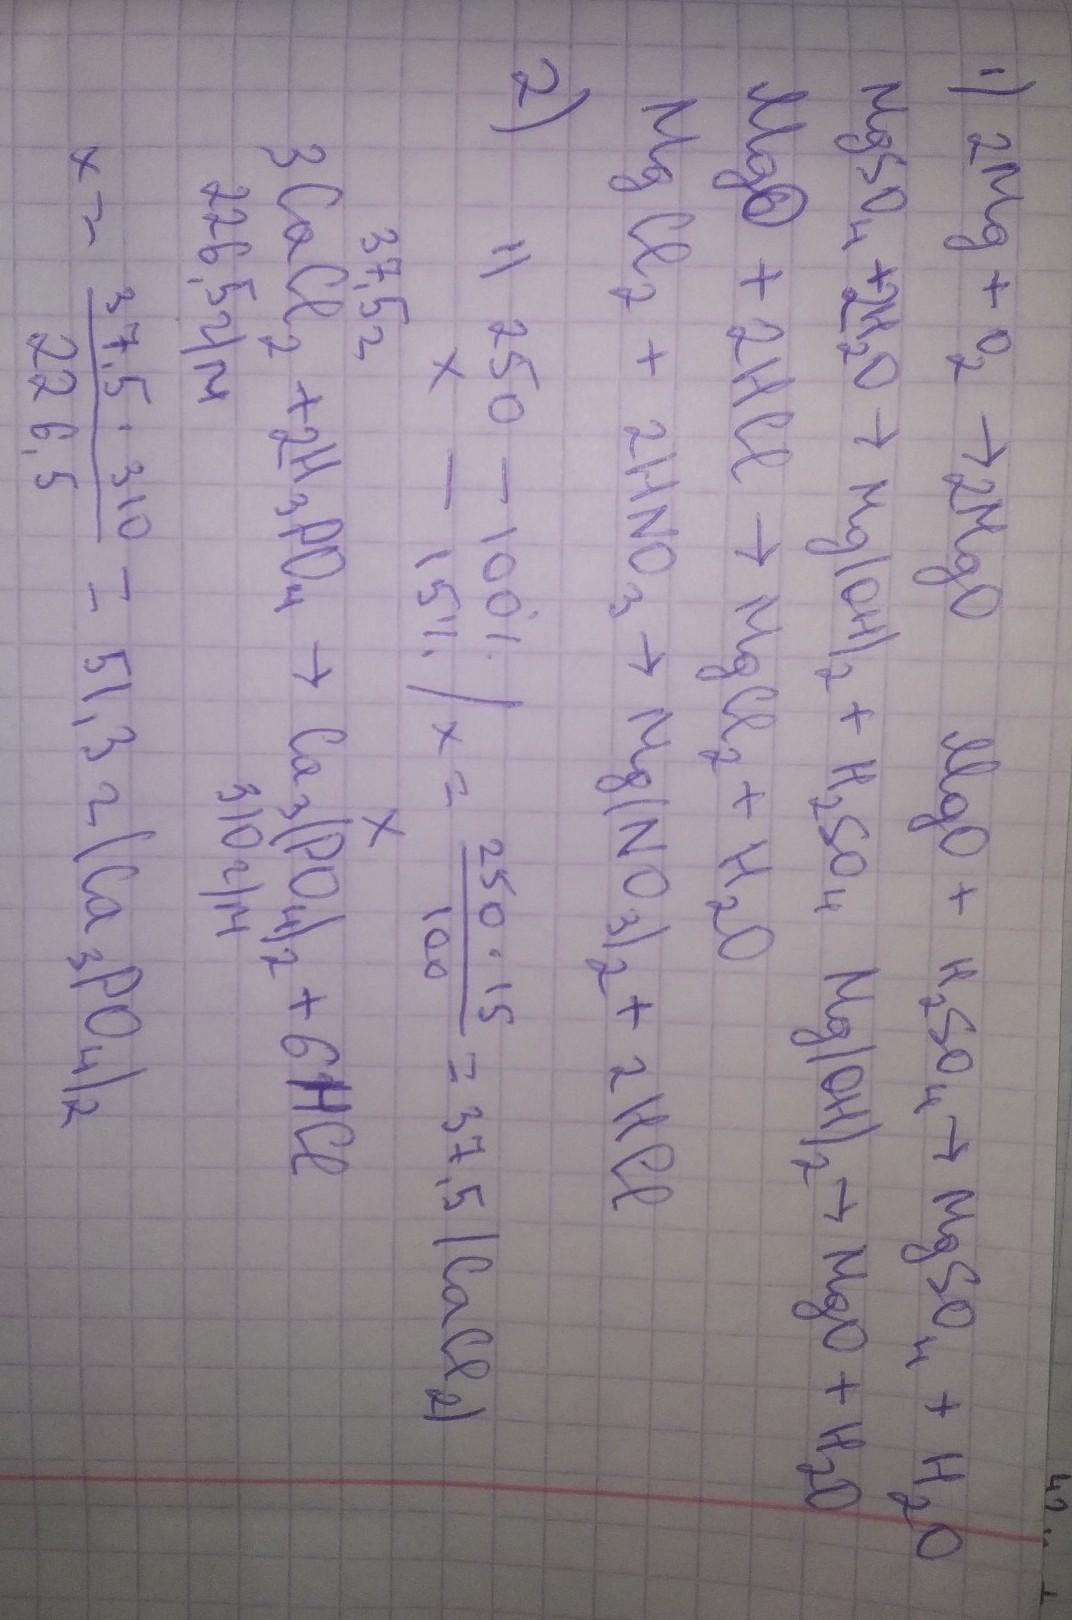 1) 2Mg + O₂ → 2MgO MgO + H₂SO₄ → MgSO₄ + H₂O
MgSO₄ + 2H₂O → Mg(OH)₂ + H₂SO₄ Mg(OH)₂ → MgO + H₂O
MgO + 2HCl → MgCl₂ + H₂O
MgCl₂ + 2HNO₃ → Mg(NO₃)₂ + 2HCl
2) 1) 250 – 100%
x – 15% / x = 250·15/100 = 37,5 (CaCl₂)
37,5г x
3CaCl₂ + 2H₃PO₄ → Ca₃(PO₄)₂ + 6HCl
226,5г/м 310г/м
x = 37,5·310/226,5 = 51,3г (Ca₃PO₄)₂